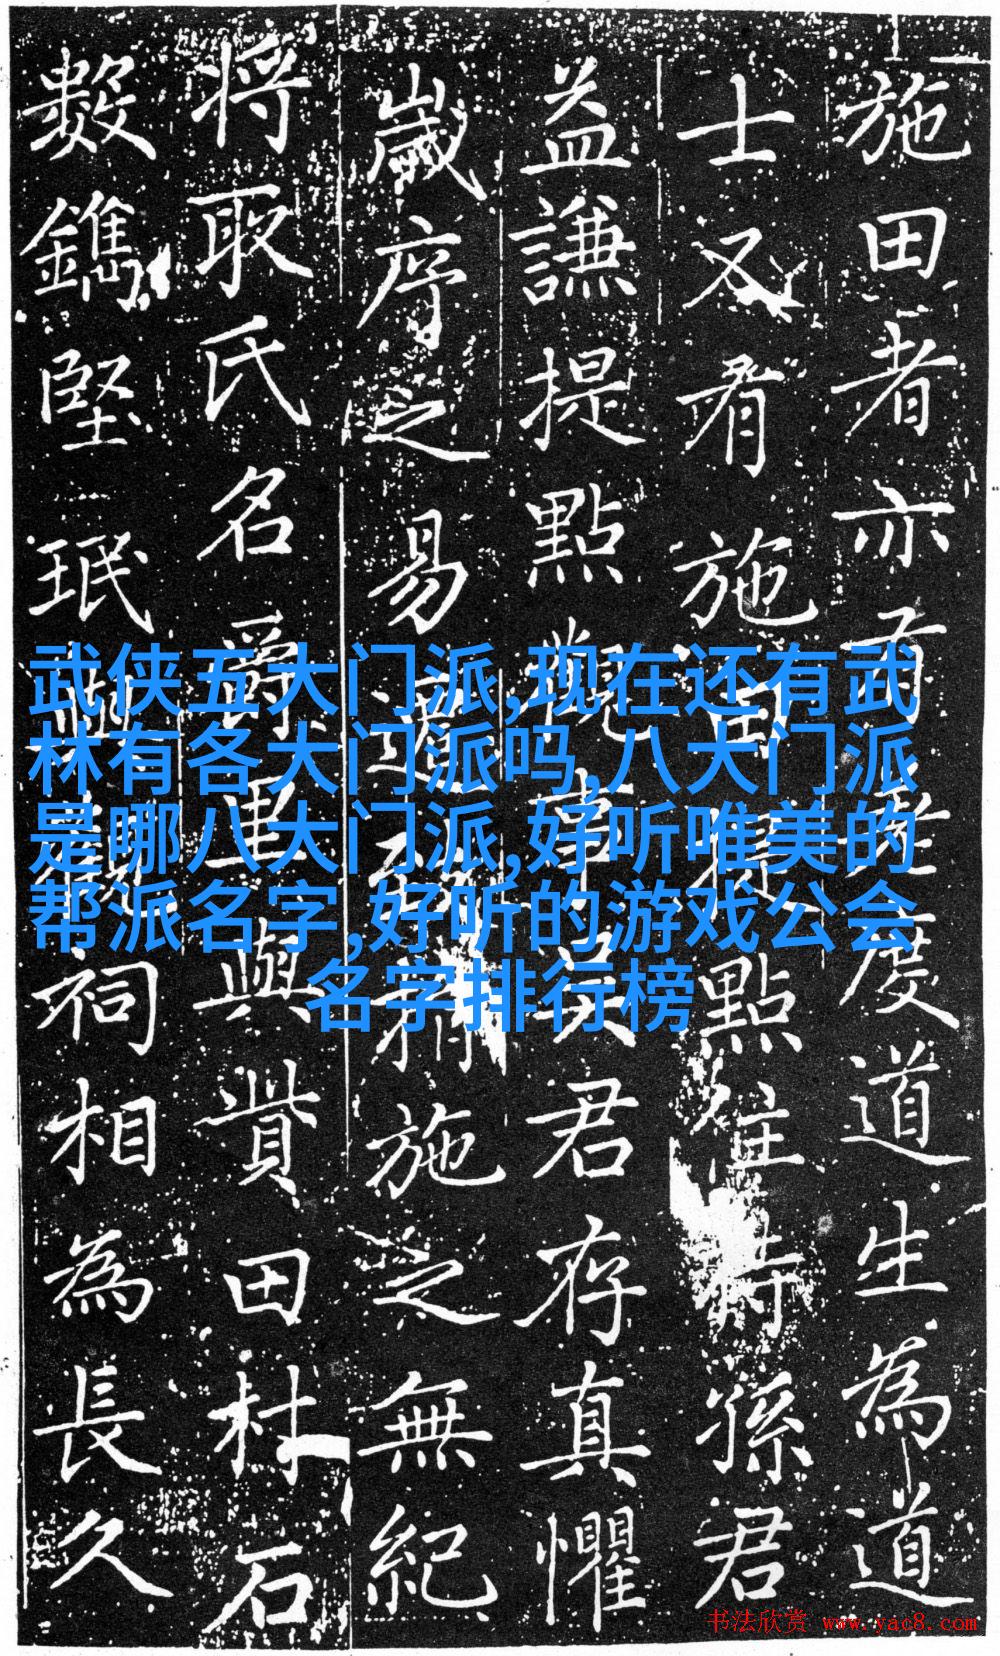 施田者亦度道生為道
士又有施田提點住持孫君
益謙提點觀事吳君存真懼
歲序之易遷而施之無紀
將取氏名爵里與貲田杜石
數鐫堅珉與祠相為長久
武侠五大门派,现在还有武
林有各大门派吗,八大门派
是哪八大门派,好听唯美的
帮派名字,好听的游戏公会
名字排行榜
书法欣赏 www.yac8.com